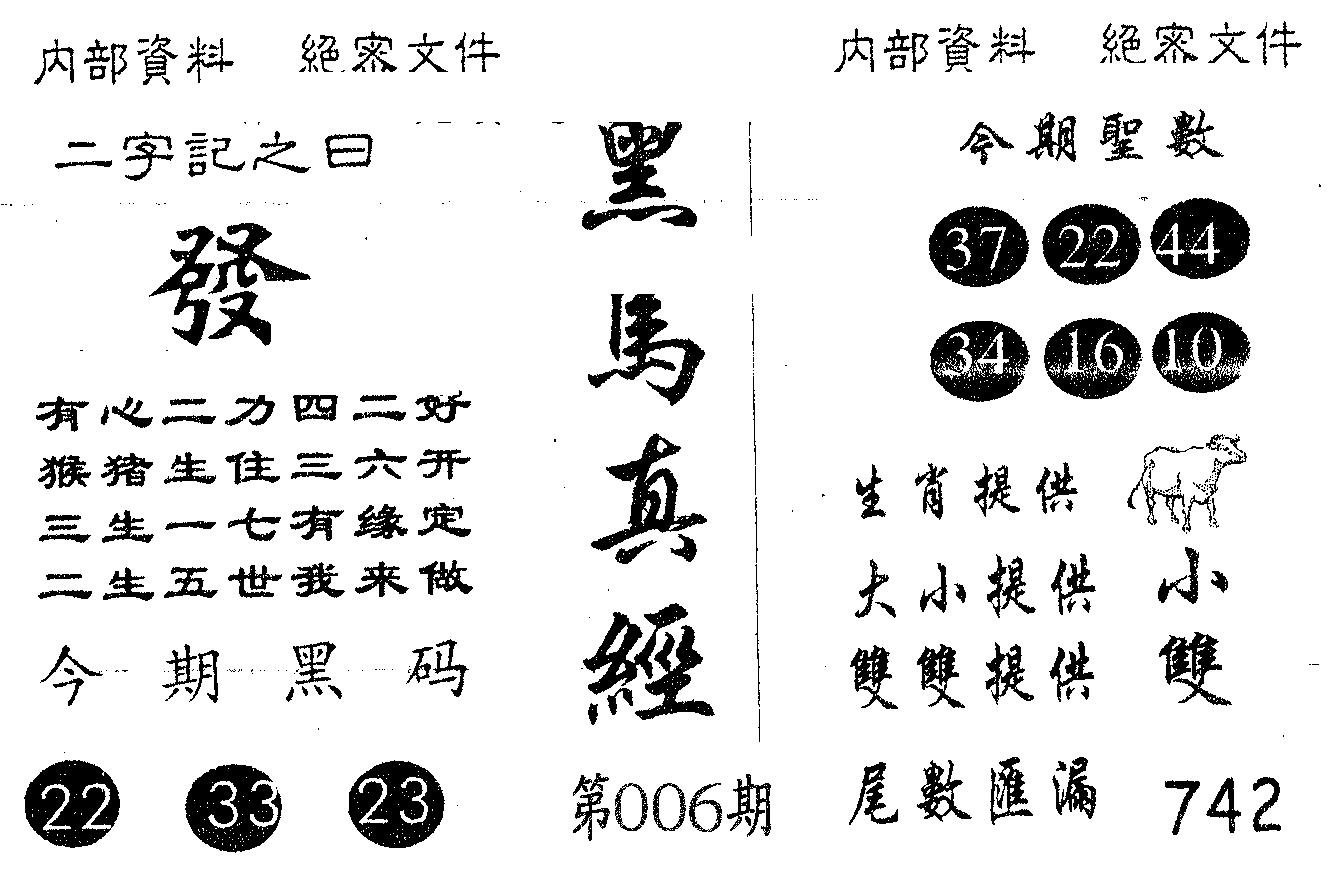 内部資料 絕密文件
二字記之曰
發
有心二力四二好
猴猪生住三六开
三生一七有缘定
二生五世我来做
今期黑码
22 33 23
黑馬真經
第006期
内部資料 絕密文件
今期聖數
37 22 44
34 16 10
生肖提供
大小提供 小
雙雙提供 雙
尾數匯漏 742